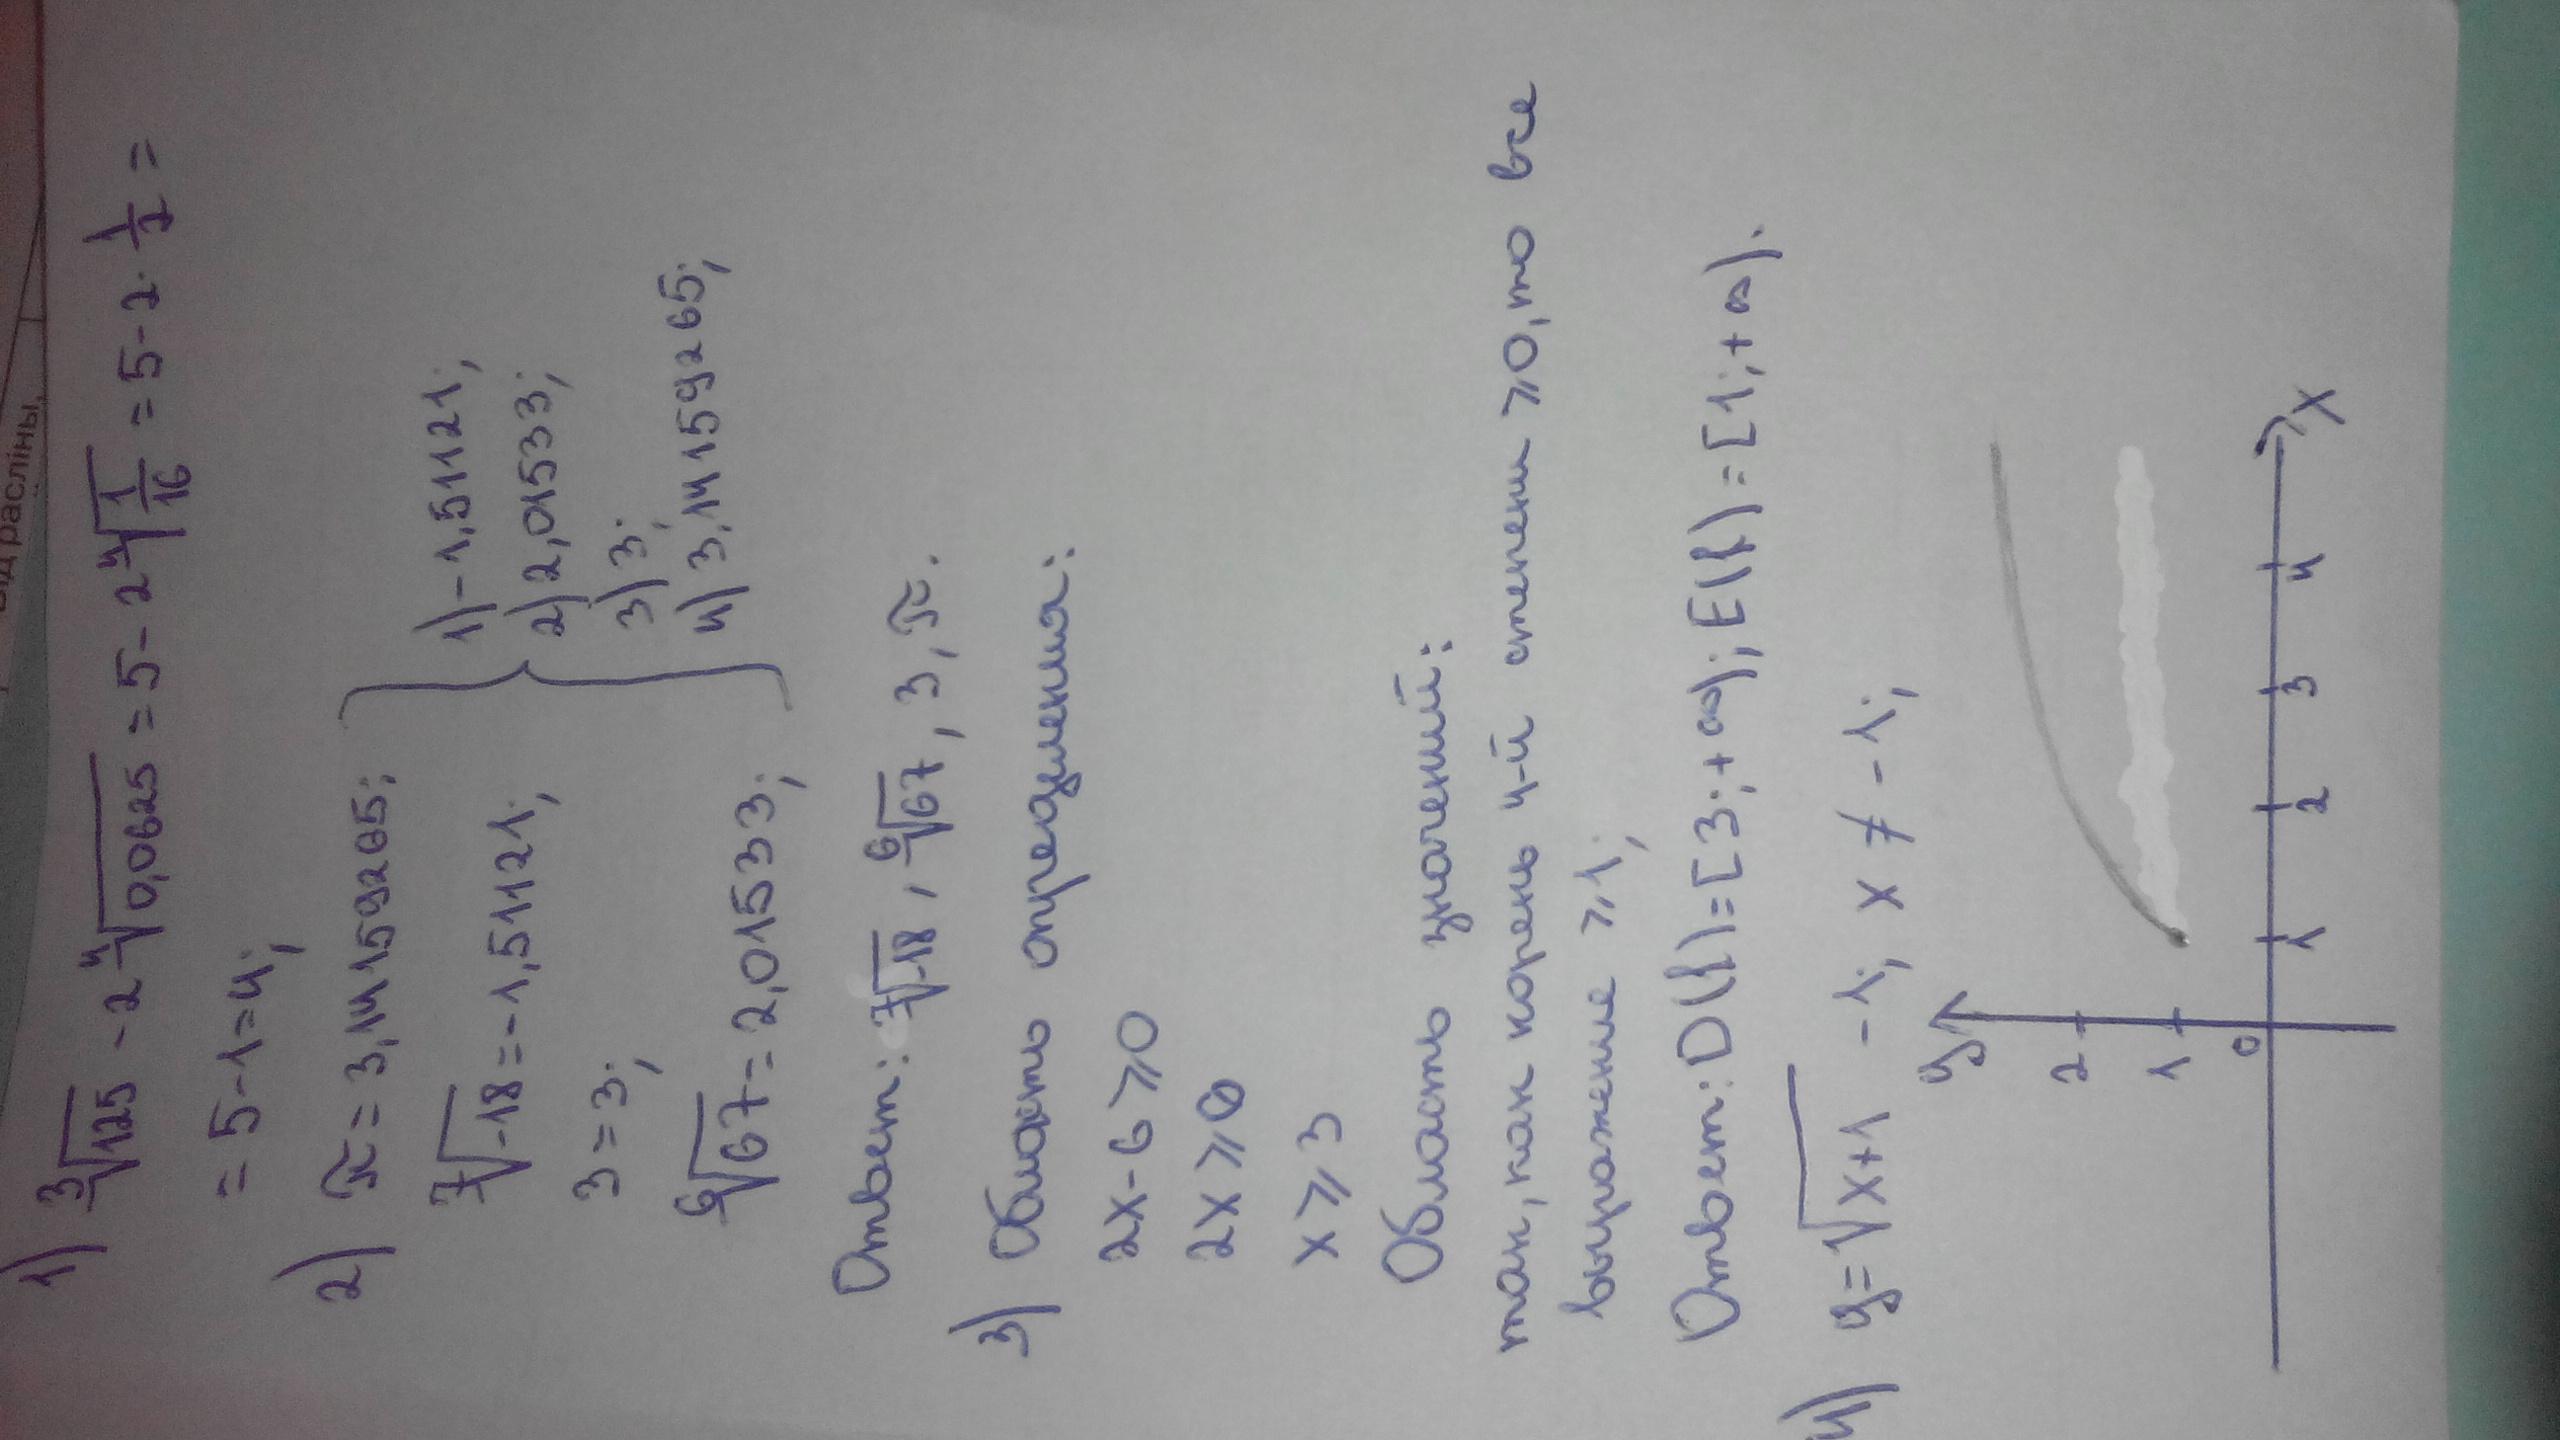 відрасліны,
1) ∛125 - 2∜0,0625 = 5 - 2∜(1/16) = 5 - 2 · 1/2 =
= 5 - 1 = 4;
2) π = 3,14159265;
⁷√-18 = -1,51121;
3 = 3;
⁶√67 = 2,01533;
1) -1,51121;
2) 2,01533;
3) 3;
4) 3,14159265;
Ответ: ⁷√-18, ⁶√67, 3, π.
3) Область определения:
2x - 6 ⩾ 0
2x ⩾ 6
x ⩾ 3
Область значений:
так, как корень 4-й степени ⩾ 0, то все
выражение ⩾ 1;
Ответ: D(f) = [3; +∞); E(f) = [1; +∞).
4) y = √x+1 - 1; x ≠ -1;
y
2
1
0
1 2 3 4 x